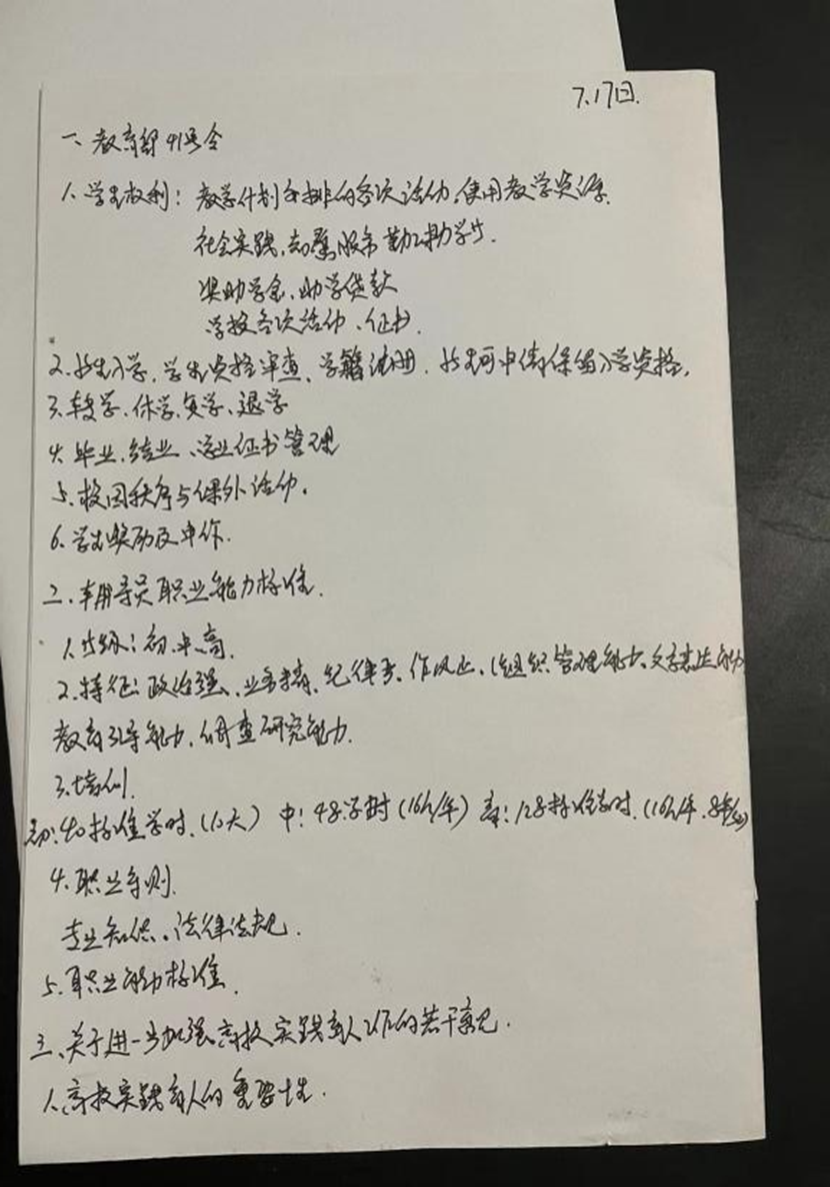 7.17日.
一、教育部41号令
1.学生权利：教学计划安排的各次活动,使用教学资源.
社会实践,志愿服务 勤工助学.
奖助学金、助学贷款
学校各次活动、证书.
2.新生入学,学生资格审查、学籍注册.新生可申请保留入学资格,
3.转学、休学、复学、退学
4.毕业、结业、学业证书管理
5.校园秩序与课外活动.
6.学生奖励及申诉.
二、辅导员职业能力标准.
1.等级：初.中.高.
2.特征：政治强、业务精、纪律严、作风正、组织管理能力、文字表达能力
教育引导能力、调查研究能力.
3.培训.
初:40标准学时.(10天) 中：48学时(16h/年) 高：128标准学时.(16h/年.8年)
4.职业守则.
专业知识、法律法规.
5.职业能力标准.
三、关于进一步加强高校实践育人工作的若干意见.
1.高校实践育人的重要性.